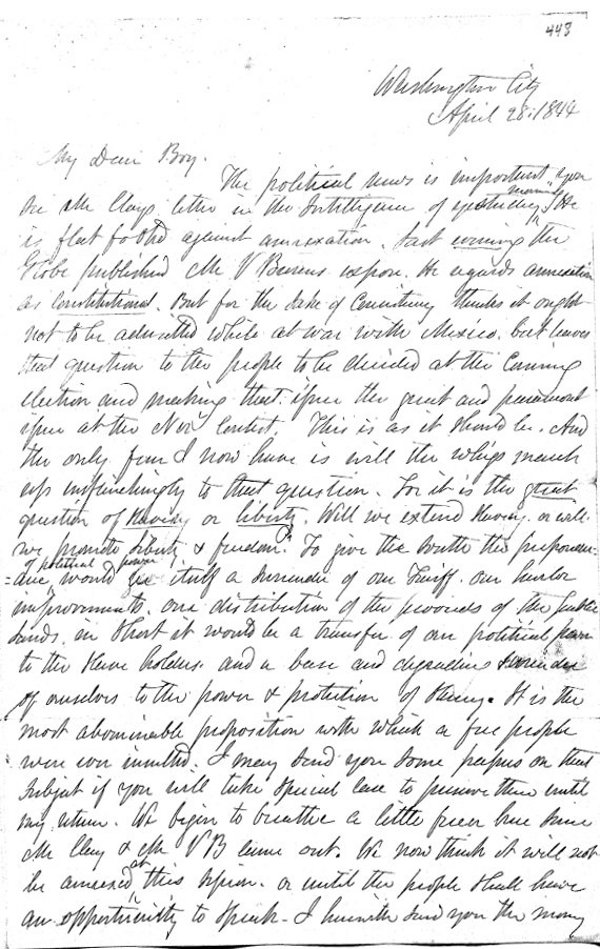 443
Washington City
April 28. 1844
My Dear Boy.
The political news is important you
see Mr Clays letter in the Intelligence of yesterday morning. He
is flat footed against annexation. Last evening the
Globe published Mr V Burens expose. He regards annexation
as constitutional. But for the sake of Consistency thinks it ought
not to be admitted while at war with Mexico. but leaves
that question to the people to be decided at the Coming
election and making that issue the great and paramount
issue at the Novr Contest. This is as it should be. And
the only fear I now have is will the whigs march
up unflinchingly to that question. For it is the great
question of Slavery or liberty. Will we extend Slavery. or will
we promote liberty & freedom? To give the South the preponder-
=ance of political power would be itself a surrender of our Tariff. our harbor
improvements. our distribution of the proceeds of the public
lands. in short it would be a transfer of our political power
to the slave holders. and a base and degrading surrender
of ourselves to the power & protection of Slavery. It is the
most abominable proposition with which a free people
were ever insulted. I may send you some papers on that
Subject if you will take special care to preserve them until
my return. We begin to breathe a little freer here since
Mr Clay & Mr V B came out. We now think it will not
be annexed at this session. or until the people shall have
an opportunity to speak - I herewith send you the money